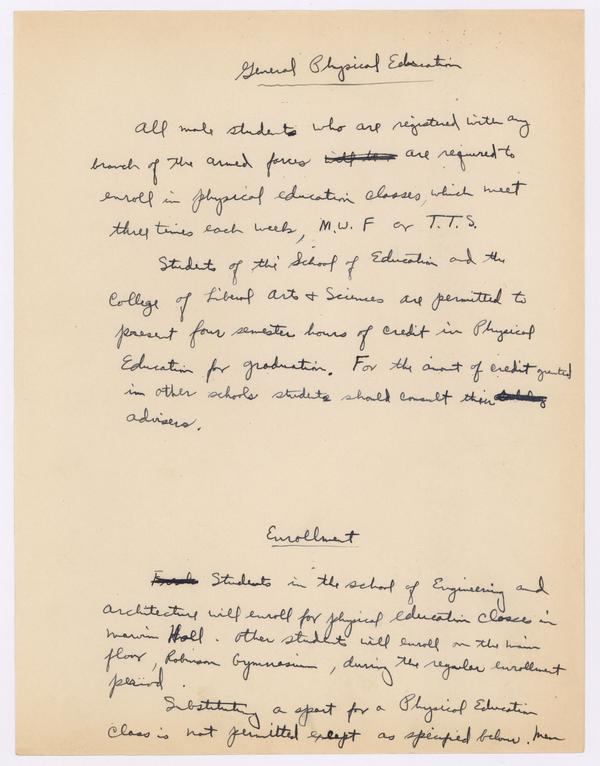 General Physical Education
All male students who are registered with any
branch of the armed forces are required to
enroll in physical education classes, which meet
three times each week, M.W.F or T.T.S.
Students of the School of Education and the
College of Liberal Arts & Sciences are permitted to
present four semester hours of credit in Physical
Education for graduation. For the amt of credit granted
in other schools students should consult their
advisers.
Enrollment
Students in the school of Engineering and
architecture will enroll for physical education classes in
Marvin Hall. Other students will enroll on the main
floor, Robinson Gymnasium, during the regular enrollment
period.
Substituting a sport for a Physical Education
class is not permitted except as specified below. Men